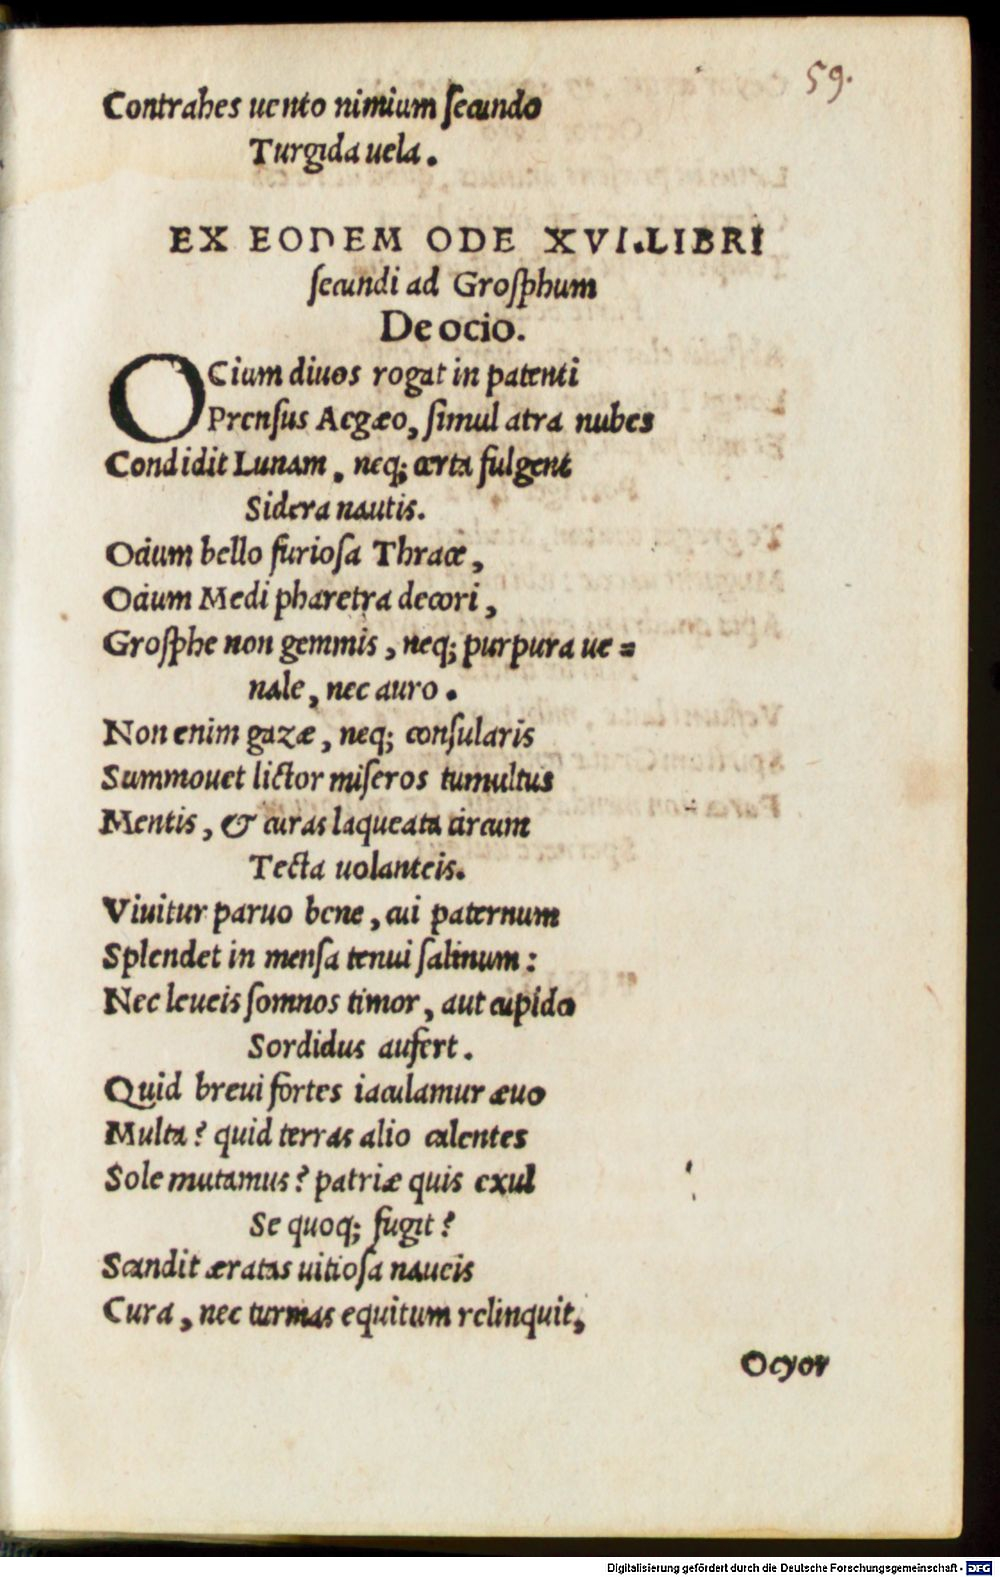 59.
Contrahes uento nimium ſecundo
Turgida uela.
EX EODEM ODE XVI.LIBRI
ſecundi ad Groſphum
De ocio.
OCium diuos rogat in patenti
Prenſus Aegæo, ſimul atra nubes
Condidit Lunam, neq; certa fulgent
Sidera nautis.
Ocium bello furioſa Thrace,
Ocium Medi pharetra decori,
Groſphe non gemmis, neq; purpura ue=
nale, nec auro.
Non enim gazæ, neq; conſularis
Summouet lictor miſeros tumultus
Mentis, & curas laqueata circum
Tecta uolanteis.
Viuitur paruo bene, cui paternum
Splendet in menſa tenui ſalinum:
Nec leueis ſomnos timor, aut cupido
Sordidus aufert.
Quid breui fortes iaculamur æuo
Multa? quid terras alio calentes
Sole mutamus? patriæ quis exul
Se quoq; fugit?
Scandit æratas uitioſa naueis
Cura, nec turmas equitum relinquit,
Ocyor
Digitalisierung gefördert durch die Deutsche Forschungsgemeinschaft - DFG